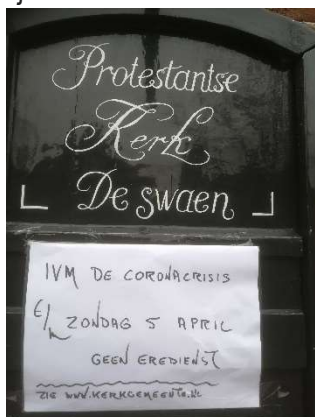 Protestantse
Kerk
De Swaen
IVM DE CORONACRISIS
T/M ZONDAG 5 APRIL
GEEN EREDIENST
ZIE WWW.KERKGEMEENTE.NL